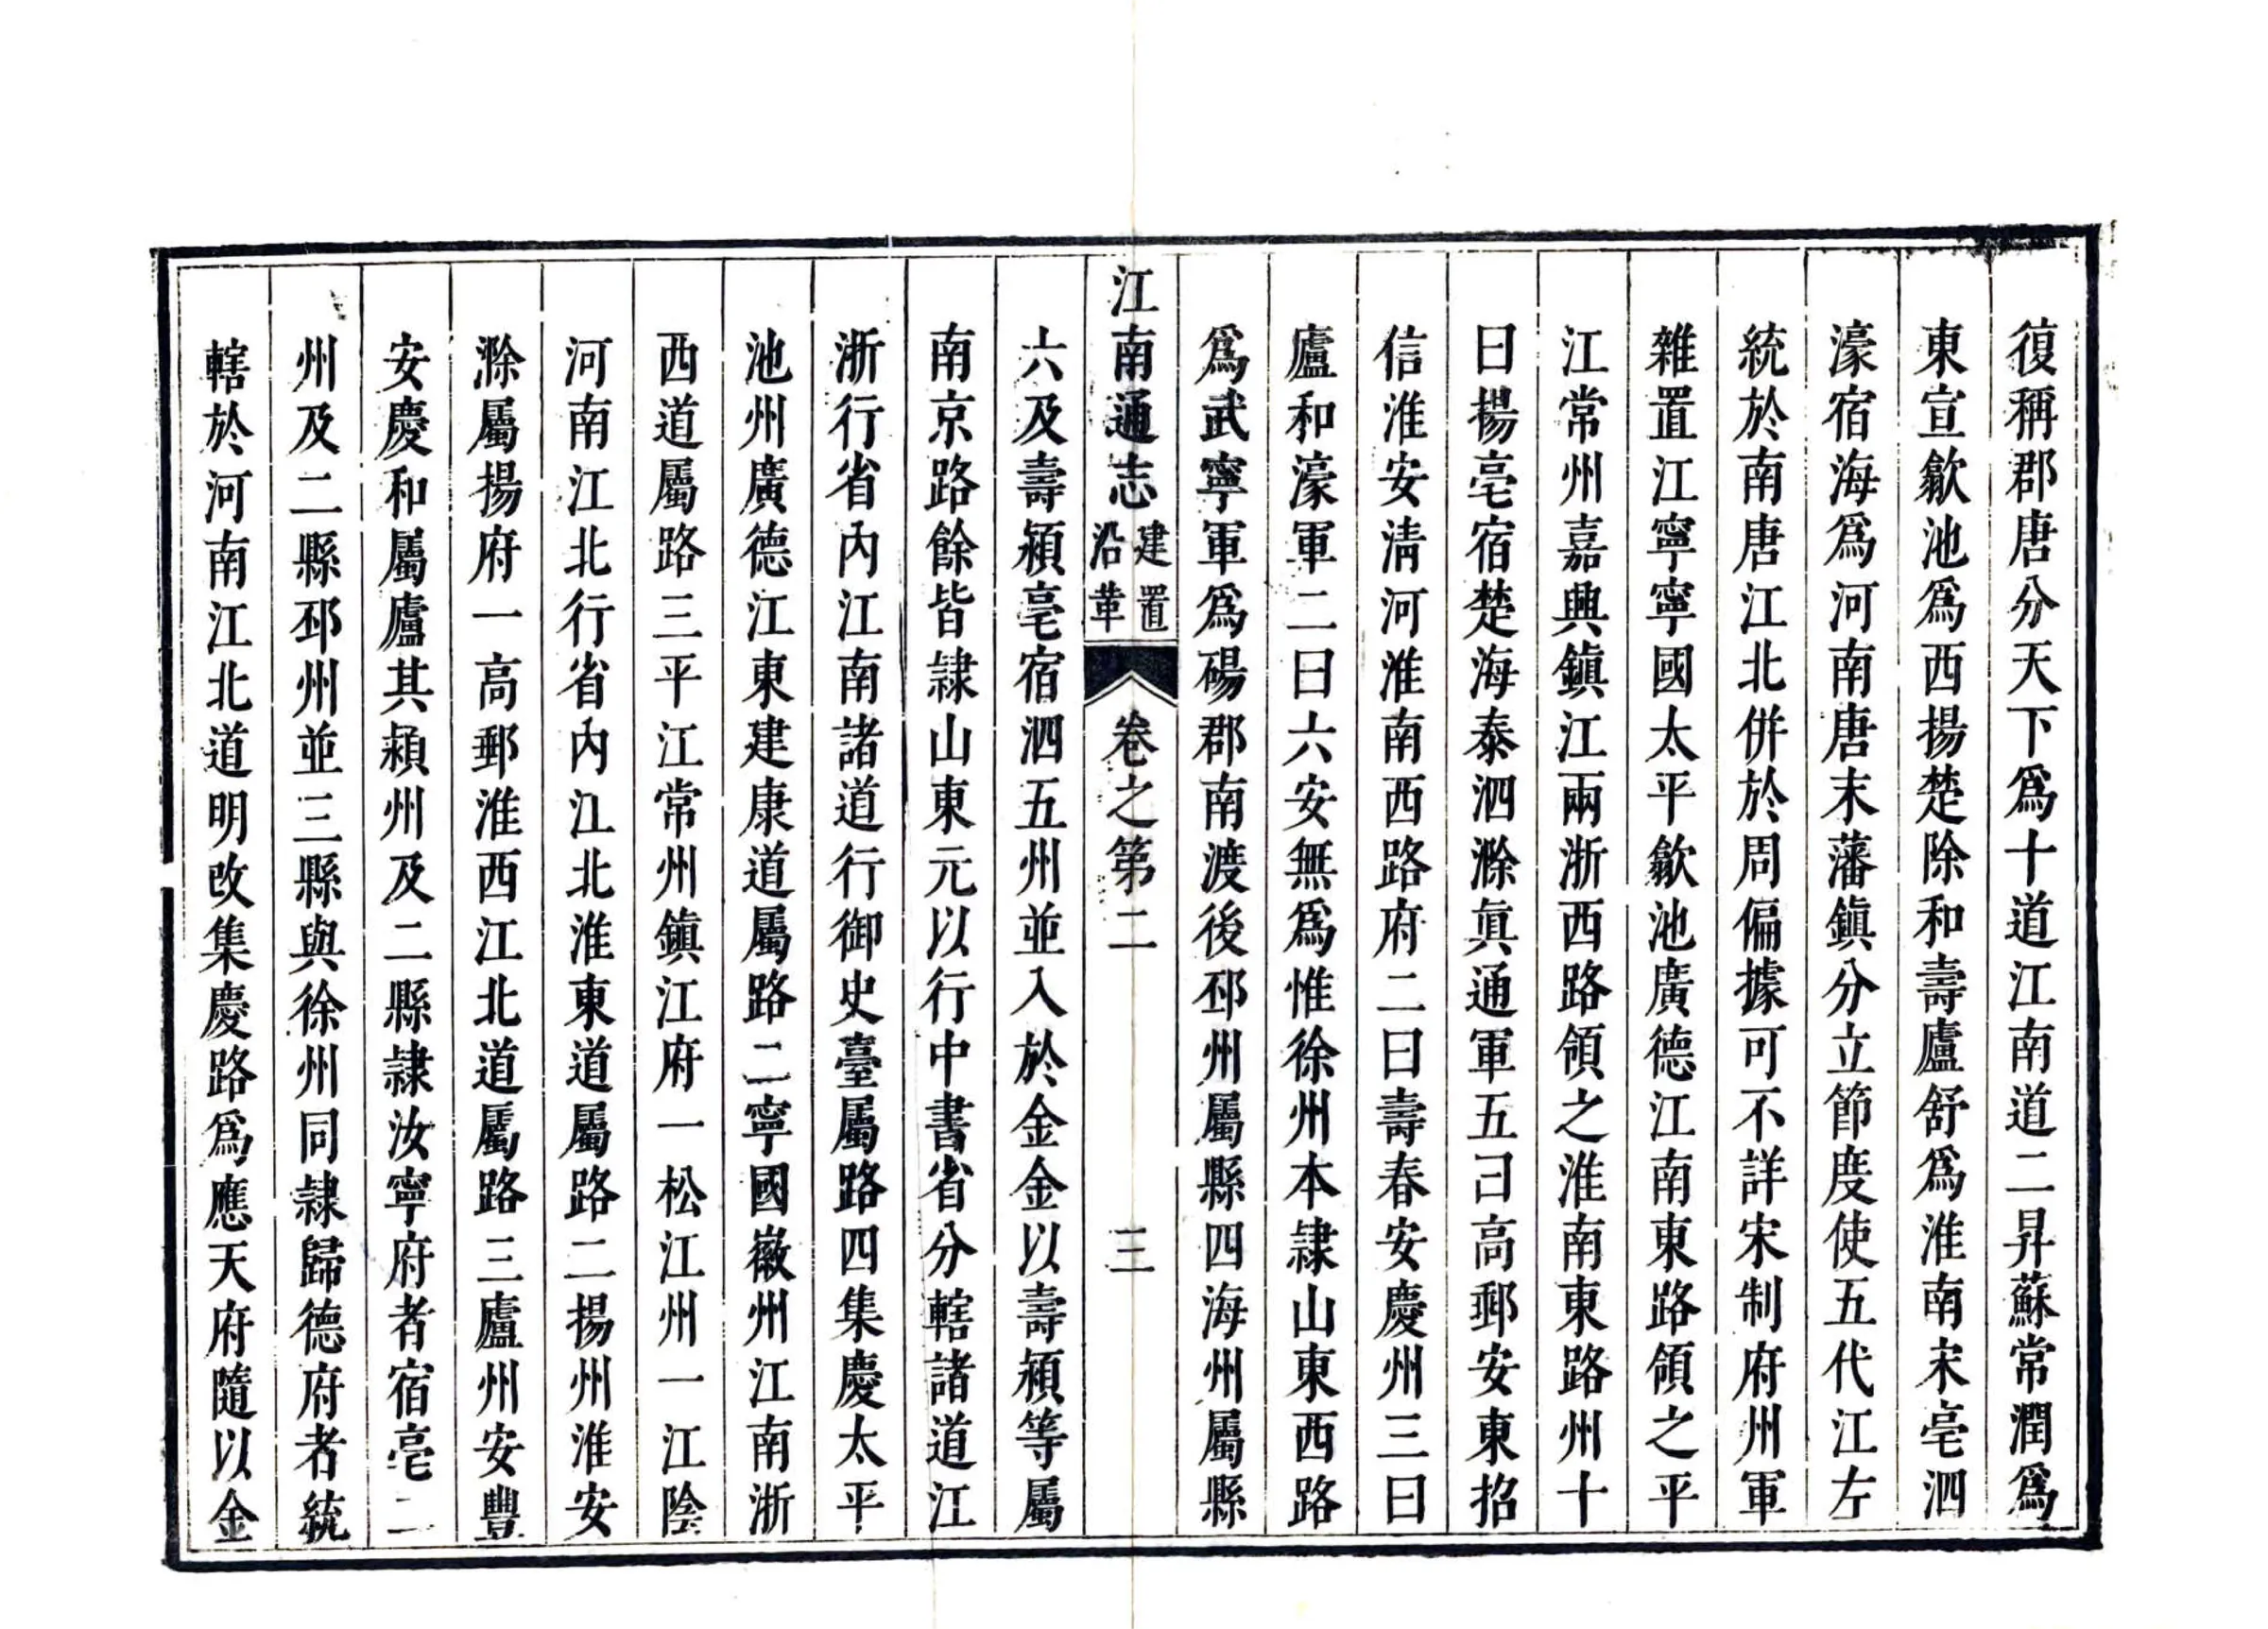 復稱郡唐分天下爲十道江南道二昇蘇常潤爲
東宣歙池爲西揚楚除和壽廬舒爲淮南宋亳泗
濠宿海爲河南唐末藩鎮分立節度使五代江左
統於南唐江北併於周偏據可不詳宋制府州軍
雜置江寧寧國太平歙池廣德江南東路領之平
江常州嘉興鎮江兩浙西路領之淮南東路州十
曰揚亳宿楚海泰泗滁眞通軍五曰高郵安東招
信淮安淸河淮南西路府二曰壽春安慶州三曰
廬和濠軍二曰六安無爲惟徐州本隷山東西路
爲武寧軍爲碭郡南渡後邳州屬縣四海州屬縣
江南通志 建置沿革 卷之第二 三
六及壽潁亳宿泗五州並入於金金以壽潁等屬
南京路餘皆隷山東元以行中書省分轄諸道江
浙行省內江南諸道行御史臺屬路四集慶太平
池州廣德江東建康道屬路二寧國徽州江南浙
西道屬路三平江常州鎮江府一松江州一江陰
河南江北行省內江北淮東道屬路二揚州淮安
滁屬揚府一高郵淮西江北道屬路三廬州安豐
安慶和屬廬其潁州及二縣隷汝寧府者宿亳二
州及二縣邳州並三縣與徐州同隷歸德府者統
轄於河南江北道明改集慶路爲應天府隨以金